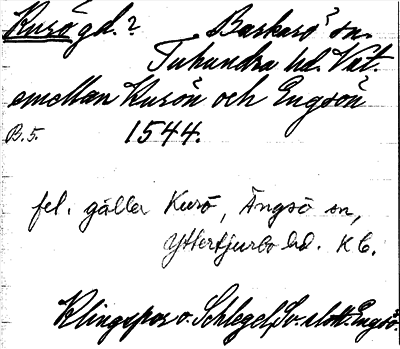 Kurö gd.? Barkarö sn.
Tuhundra hd. Vat.
emellan Kurön och Engsön
B.5. 1544.
fel. gäller Kurö, Ängsö sn,
Yttertjurbo hd. KC.
Klingspor o. Schlegel, Sv. slott. Engsö.